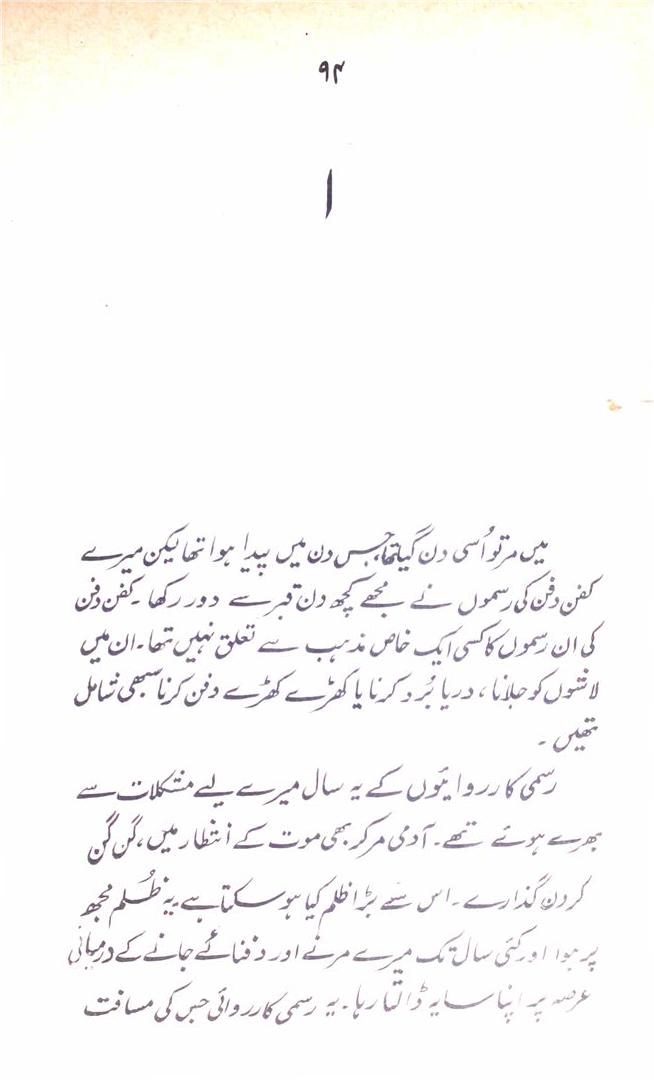 ۹۴
ا
میں مر تو اُسی دن گیا تھا، جس دن میں پیدا ہوا تھا لیکن میرے
کفن دفن کی رسموں نے مجھے کچھ دن قبر سے دور رکھا۔ کفن دفن
کی ان رسموں کا کسی ایک خاص مذہب سے تعلق نہیں تھا۔ ان میں
لاشوں کو جلانا، دریا بُرد کرنا یا کھڑے کھڑے دفن کرنا سبھی شامل
تھیں۔
رسمی کارروائیوں کے یہ سال میرے لیے مشکلات سے
بھرے ہوئے تھے۔ آدمی مر کر بھی موت کے انتظار میں، گن گن
کر دن گذارے۔ اس سے بڑا ظلم کیا ہو سکتا ہے۔ یہ ظُلم مجھ
پر ہوا اور کئی سال تک میرے مرنے اور دفنائے جانے کے درمیانی
عرصہ پر اپنا سایہ ڈالتا رہا۔ یہ رسمی کارروائی جس کی مسافت